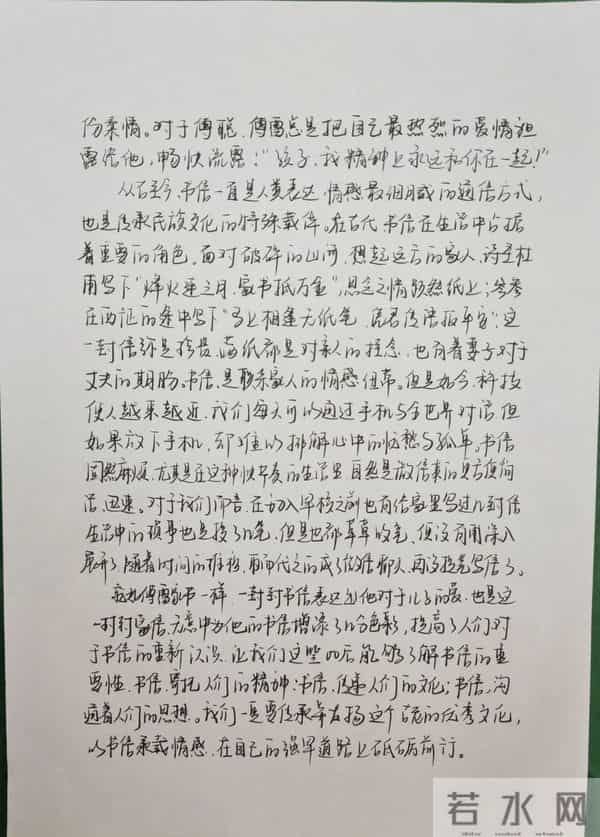 份柔情。对于傅聪,傅雷总是把自己最热烈的爱情袒
露给他,畅快流露:“孩子,我精神上永远和你在一起!”
从古至今,书信一直是人类表达情感最细腻的通信方式,
也是传承民族文化的特殊载体。在古代,书信在生活中占据
着重要的角色。面对破碎的山河,想起远方的家人,诗圣杜
甫写下“烽火连三月,家书抵万金”,思念之情跃然纸上;岑参
在西征的途中写下“马上相逢无纸笔,凭君传语报平安”;这
一封信弥足珍贵,满纸都是对亲人的挂念,也有着妻子对于
丈夫的期盼。书信,是联系家人的情感纽带。但是如今,科技
使人越来越近,我们每天可以通过手机与全世界对话,但
如果放下手机,却难以排解心中的忧愁与孤单。书信
固然麻烦,尤其是在这种快节奏的生活里,自然是微信来的更方便简
洁、迅速。对于我们而言,在初入军校之前也有给家里写过几封信
生活中的琐事也是提了几笔,但是也都草草收笔,便没有用深入
展开了。随着时间的推移,取而代之的成了微信聊天,再没提笔写信了。
就如傅雷家书一样,一封封书信表达出他对于儿子的爱,也是这
一封封家信,无意中为他的书信增添了几分色彩,提高了人们对
于书信的重新认识,让我们这些00后能够了解书信的重
要性。书信,寄托人们的精神;书信,传递人们的文化;书信,沟
通着人们的思想。我们一定要传承并发扬这个古老的优秀文化,
以书信承载情感,在自己的强军道路上砥砺前行。
若水网